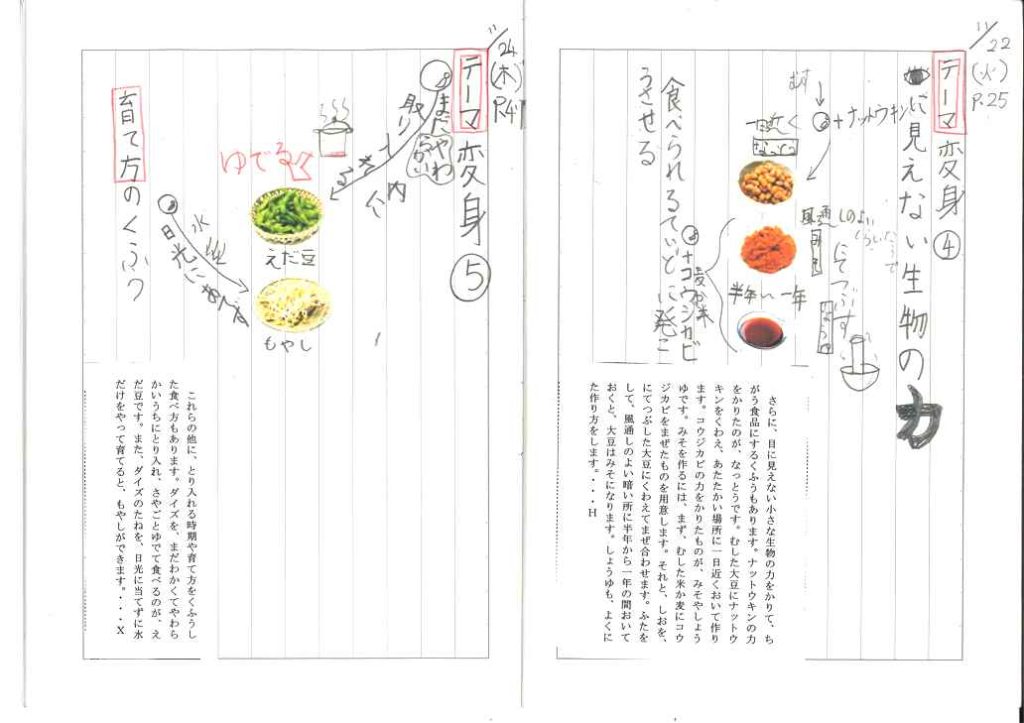 11/22
(火)
P.25
テーマ
変身④
に見えない生物の力
むす
+ナットウキン
なっとう
風通しのよい
にてつぶす
半年〜一年
+コウジカビ
麦か米
食べられるていどに発こ
うさせる
さらに、目に見えない小さな生物の力をかりて、ち
がう食品にするくふうもあります。ナットウキンの力
をかりたのが、なっとうです。むした大豆にナットウ
キンをくわえ、あたたかい場所に一日近くおいて作り
ます。コウジカビの力をかりたものが、みそやしょう
ゆです。みそを作るには、まず、むした米か麦にコウ
ジカビをまぜたものを用意します。それと、しおを、
にてつぶした大豆にくわえてまぜ合わせます。ふたを
して、風通しのよい暗い所に半年から一年の間おいて
おくと、大豆はみそになります。しょうゆも、よくに
た作り方をします。・・・H
11/24
(木)
P.41
テーマ
変身⑤
まだやわらかい
ゆでる
えだ豆
もやし
水
日光に
育て方のくふう
これらの他に、とり入れる時期や育て方をくふうし
た食べ方もあります。ダイズを、まだわかくてやわら
かいうちにとり入れ、さやごとゆでて食べるのが、え
だ豆です。また、ダイズのたねを、日光に当てずに水
だけをやって育てると、もやしができます。・・・X